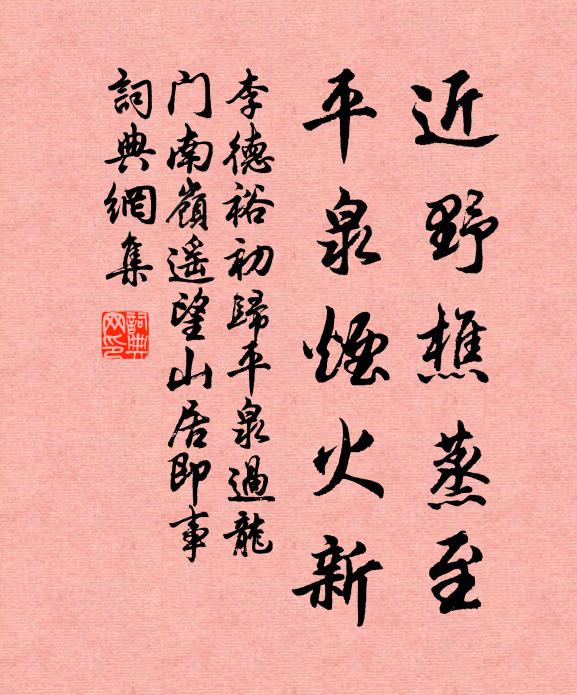 近野樵蒸至
平泉煙火新
李德裕初歸平泉過龍
门南嶺遥望山居即事
詞典網集
詞典
网印